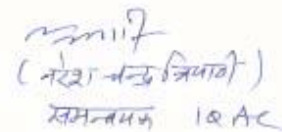 (नरेश चन्द्र त्रिपाठी)
समन्वयक IQAC